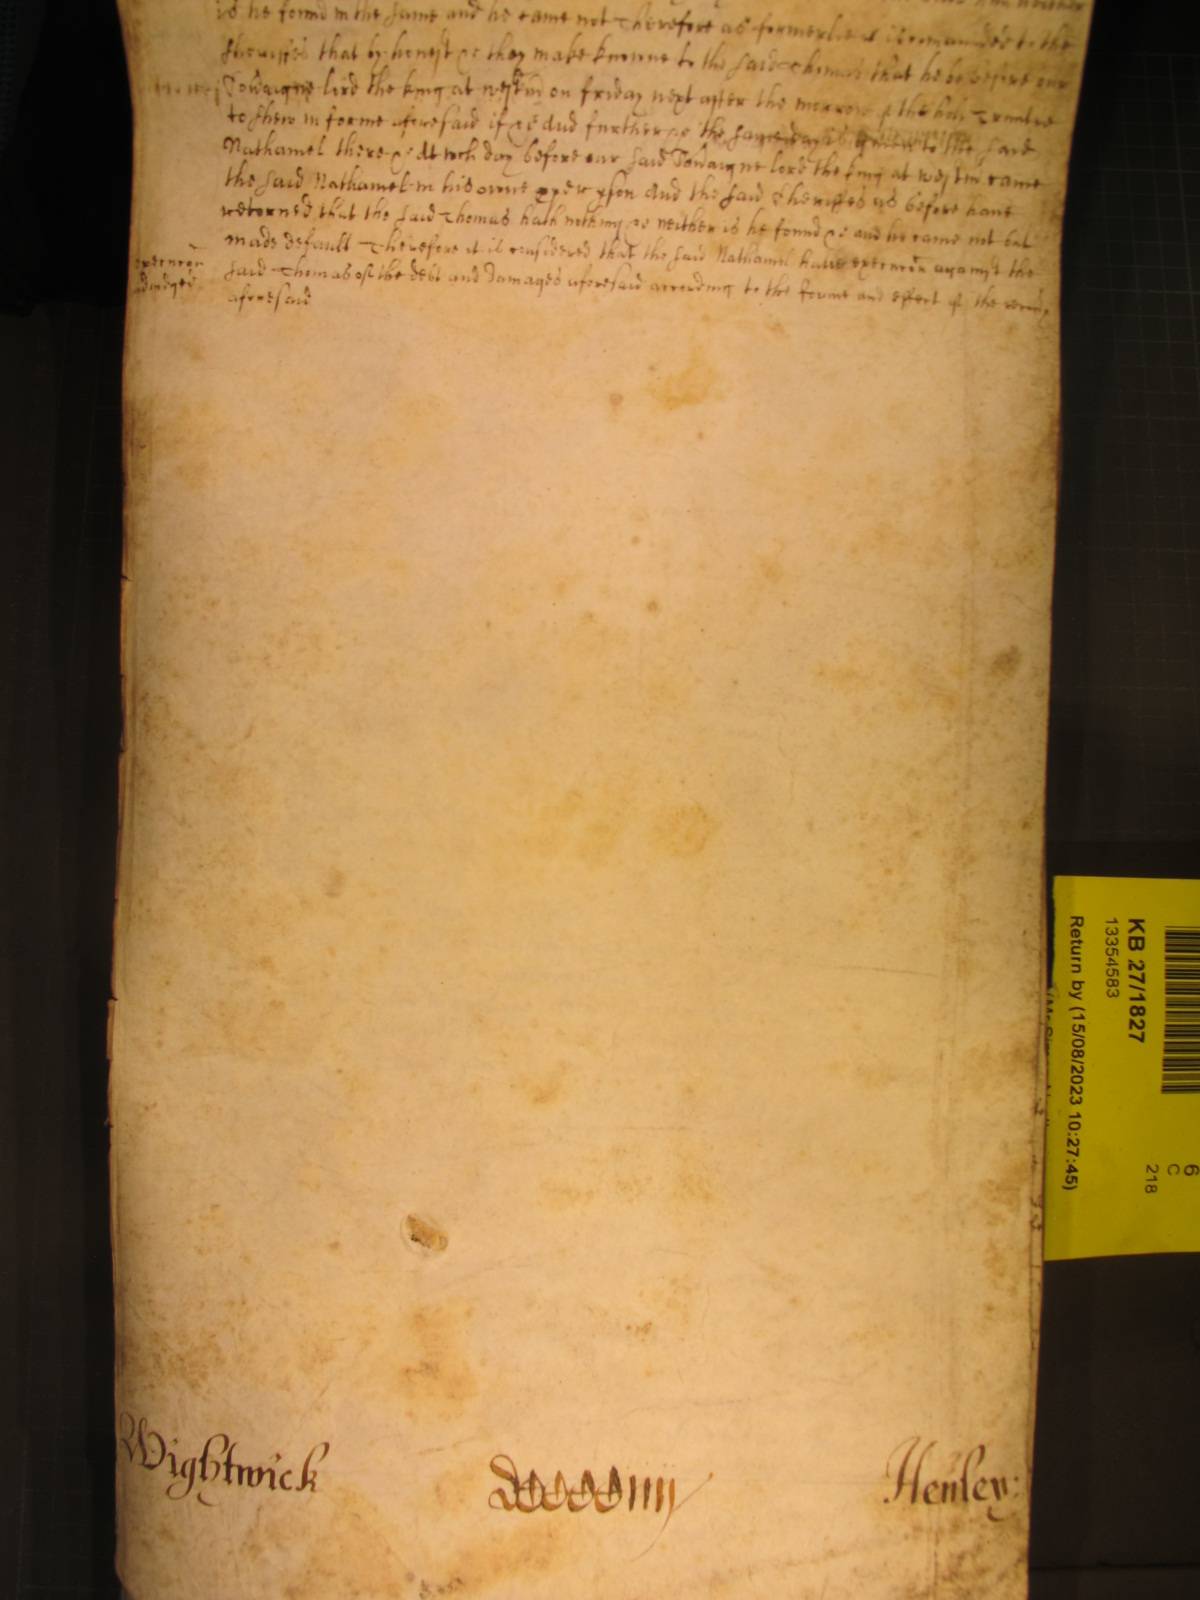 is he found in the same and he came not Therefore as formerlie it is comanded to the
Sheriffes that by honest &c they make knowne to the said Thomas that he be before our
Soveraigne lord the king at westm on friday next after the morrow of the holy Trinitie
to shew in forme aforesaid if &c And further &c the same day is given to the said
Nathaniel there &c At wch day before our said Soveraigne lord the king at westm came
the said Nathaniel in his owne pson And the said Sheriffes as before have
retorned that the said Thomas hath nothing &c neither is he found &c and he came not but
made default Therefore it is considered that the said Nathaniel have execucon against the
execucon
adiudged
said Thomas of the debt and damages aforesaid according to the forme and effect of the
aforesaid
Wightwick
Henley:
KB 27/1827
13354583
Return by (15/08/2023 10:27:45)
6
C
218